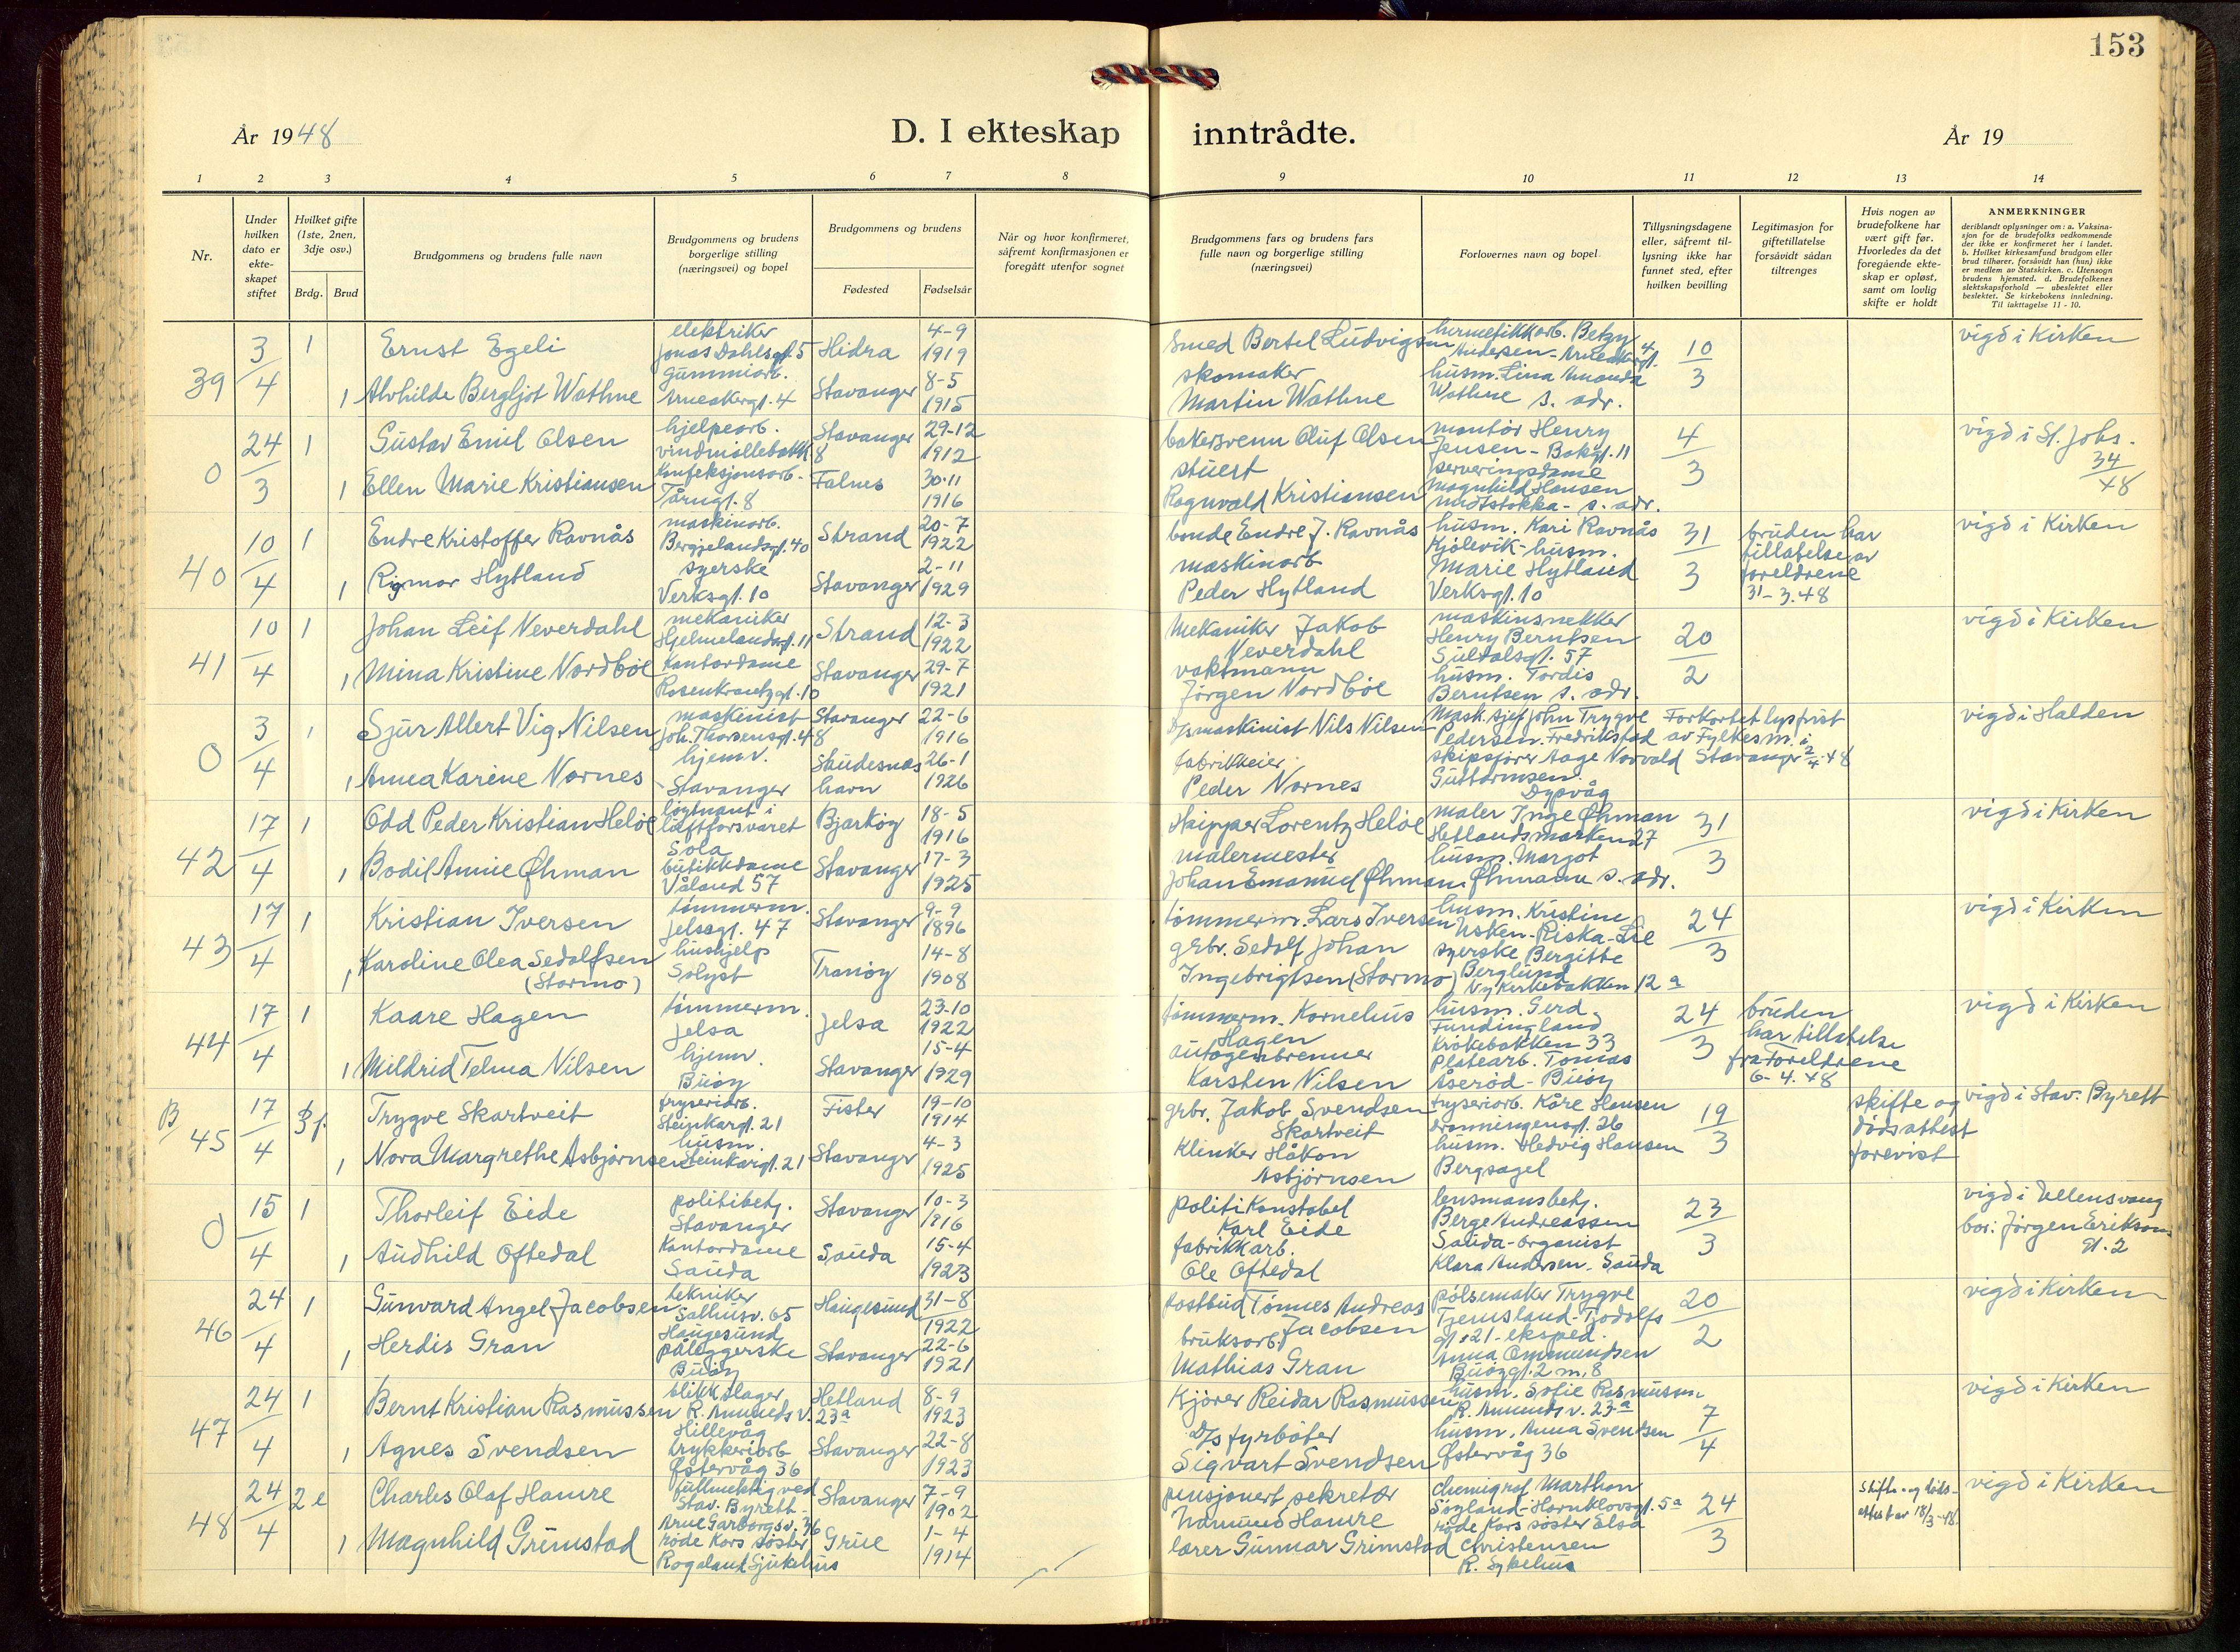 153
År 1948
D. I ekteskap inntrådte.
År 19
1 2 3 4 5 6 7 8 9 10 11 12 13 14
Nr.
Under hvilken dato er ekte-skapet stiftet
Hvilket gifte (1ste, 2nen, 3dje osv.)
Brdg. Brud
Brudgommens og brudens fulle navn
Brudgommens og brudens borgerlige stilling (næringsvei) og bopel
Brudgommens og brudens
Fødested Fødselsår
Når og hvor konfirmeret, såfremt konfirmasjonen er foregått utenfor sognet
Brudgommens fars og brudens fars fulle navn og borgerlige stilling (næringsvei)
Forlovernes navn og bopel
Tillysningsdagene eller, såfremt til-lysning ikke har funnet sted, efter hvilken bevilling
Legitimasjon for giftetillatelse forsåvidt sådan tiltrenges
Hvis nogen av brudefolkene har vært gift før. Hvorledes da det foregående ekte-skap er opløst, samt om lovlig skifte er holdt
ANMERKNINGER
deriblandt oplysninger om: a. Vaksina-sjon for de brudefolks vedkommende der ikke er konfirmeret her i landet. b. Hvilket kirkesamfund brudgom eller brud tilhører, forsåvidt han (hun) ikke er medlem av Statskirken. c. Utensogn brudens hjemsted. d. Brudefolkenes slektskapsforhold — ubeslektet eller beslektet. Se kirkebokens innledning. Til iakttagelse 11 - 10.
39 3/4 1 Ernst Egeli elektriker Jonas Dahlsgt. 5 Hidra 4-9 1919
1 Alvhilde Bergljot Wathne gummiarb. Arneakergt. 4 Stavanger 8-5 1915
Smed Bertel Ludvigsen
skomaker Martin Wathne
hermetikkarb. Betzy Andersen - Arneakergt. 4
husm. Lina Amanda Wathne s. adr.
10/3
vigd i Kirken
0 24/3 1 Gustav Emil Olsen hjelpearb. vindmøllebakk. 8 Stavanger 29-12 1912
1 Ellen Marie Kristiansen Konfeksjonsarb. Tårngt. 8 Falnes 30-11 1916
bakersvenn Oluf Olsen
stuert Ragnvald Kristiansen
montør Henry Jensen - Bakgt. 11
serveringsdame Magnhild Hansen - s. adr.
4/3
vigd i St. Johs. 34/48
40 10/4 1 Endre Kristoffer Ravnås maskinarb. Bergjelandsgt. 40 Strand 20-7 1922
1 Rigmor Hytland syerske Verksgt. 10 Stavanger 2-11 1929
bonde Endre J. Ravnås
maskinarb Peder Hytland
husm. Kari Ravnås Kjølevik - husm. Marie Hytland Verksgt. 10
31/3
bruden har tillatelse av foreldrene 31-3.48
vigd i Kirken
41 10/4 1 Johan Leif Neverdahl mekaniker Hjelmelandsgt. 11 Strand 12-3 1922
1 Mina Kristine Nordbøe Kontordame Rosenkrantzgt. 10 Stavanger 29-7 1921
Mekaniker Jakob Neverdahl
vaktmann Jørgen Nordbøe
maskinsnekker Henry Berntsen Suldalsgt. 57
husm. Tordis Berntsen s. adr.
20/2
vigd i Kirken
0 3/4 1 Sjur Allert Vig Nilsen maskinist Joh. Thorsensgt. 48 Stavanger 22-6 1916
1 Anna Karine Nornes hjemv. Stavanger Skudesneshavn 26-1 1926
D/s maskinist Nils Nilsen
fabrikkeier Peder Nornes
Mask.sjef John Trygve Pedersen. Fredrikstad
skipsfører Aage Norvald Guttormsen Dypvåg
Forkortet lysfrist av Fylkesm. i Stavanger 2/4.48
vigd i Halden
42 17/4 1 Odd Peder Kristian Heløe løytnant i luftforsvaret Sola Bjarkøy 18-5 1916
1 Bodil Annie Øhman butikkdame Våland 57 Stavanger 17-3 1925
Skipper Lorentz Heløe
malermester Johan Emanuel Øhman
maler Inge Øhman Hetlandsmarken 27
husm. Margot Øhmann s. adr.
31/3
vigd i Kirken
43 17/4 1 Kristian Iversen tømmerm. Jelsagt. 47 Stavanger 9-9 1896
1 Karoline Olea Sedolfsen (Stormo) hushjelp Solyst Tranøy 14-8 1908
tømmerm. Lars Iversen
grbr. Sedolf Johan Ingebrigtsen (Stormo)
husm. Kristine Usken - Riska - Lie
syerske Bergitte Berglund Ny Kirkebakken 12 a
24/3
vigd i Kirken
44 17/4 1 Kaare Hagen tømmerm. Jelsa Jelsa 23-10 1922
1 Mildrid Telma Nilsen hjemv. Buøy Stavanger 15-4 1929
tømmerm. Kornelius Hagen
autogenbrenner Karsten Nilsen
husm. Gerd Fundingland Krokebakken 33
platearb. Tomas Åserød - Buøy
24/3
bruden har tillatelse fra Foreldrene 6-4.48
vigd i Kirken
B 45 17/4 Trygve Skartveit fryseriarb. Steinkargt. 21 Fister 19-10 1914
1 Nora Margrethe Asbjørnsen husm. Steinkargt. 21 Stavanger 4-3 1925
grbr. Jakob Svendsen Skartveit
Klinker Håkon Asbjørnsen
fryseriarb. Kåre Hansen Dronningensgt. 26
husm. Hedvig Hansen Bergsagel
19/3
skifte og dødsattest forevist
vigd i Stav. Byrett
0 15/4 1 Thorleif Eide politibetj. Stavanger Stavanger 10-3 1916
1 Audhild Oftedal Kontordame Sauda Sauda 15-4 1923
politikonstabel Karl Eide
fabrikkarb. Ole Oftedal
lensmansbetj. Berge Andreassen Sauda - organist Klara Andersen. Sauda
23/3
vigd i Ullensvang bor: Jørgen Eriksons gt. 2
46 24/4 1 Gunvard Angel Jacobsen tekniker Salhusv. 65 Haugesund Haugesund 31-8 1922
1 Herdis Gran påleggerske Buøy Stavanger 22-6 1921
postbud Tønnes Andreas Jacobsen
bruksarb. Mathias Gran
pølsemaker Trygve Tjemsland - Tjodolfs gt. 21 - eksped. Anna Ommundsen Buøygt. 2 m. 8
20/2
vigd i Kirken
47 24/4 1 Bernt Kristian Rasmussen blikkslager R. Amunds v. 23a Hillevåg Hetland 8-9 1923
1 Agnes Svendsen trykkeriarb Østervåg 36 Stavanger 22-8 1923
Kjører Reidar Rasmussen
D/s fyrbøter Sigvart Svendsen
husm. Sofie Rasmussen R. Amunds v. 23 a
husm. Anna Svendsen Østervåg 36
7/4
vigd i Kirken
48 24/4 2 e Charles Olaf Hamre fullmektig ved Stav. Byrett - Arne Garborgsv. 36 Stavanger 7-9 1902
1 Magnhild Grimstad røde Kors søster Rogaland Sjukehus Grue 1-4 1914
pensjonert sekretær Hamre
lærer Gunnar Grimstad
chemigraf Marthon Søyland - Hornklovsgt. 5a
røde Kors søster Elsa Christensen R. Sykehus
24/3
skifte- og dødsattest av 18/3-48
vigd i Kirken